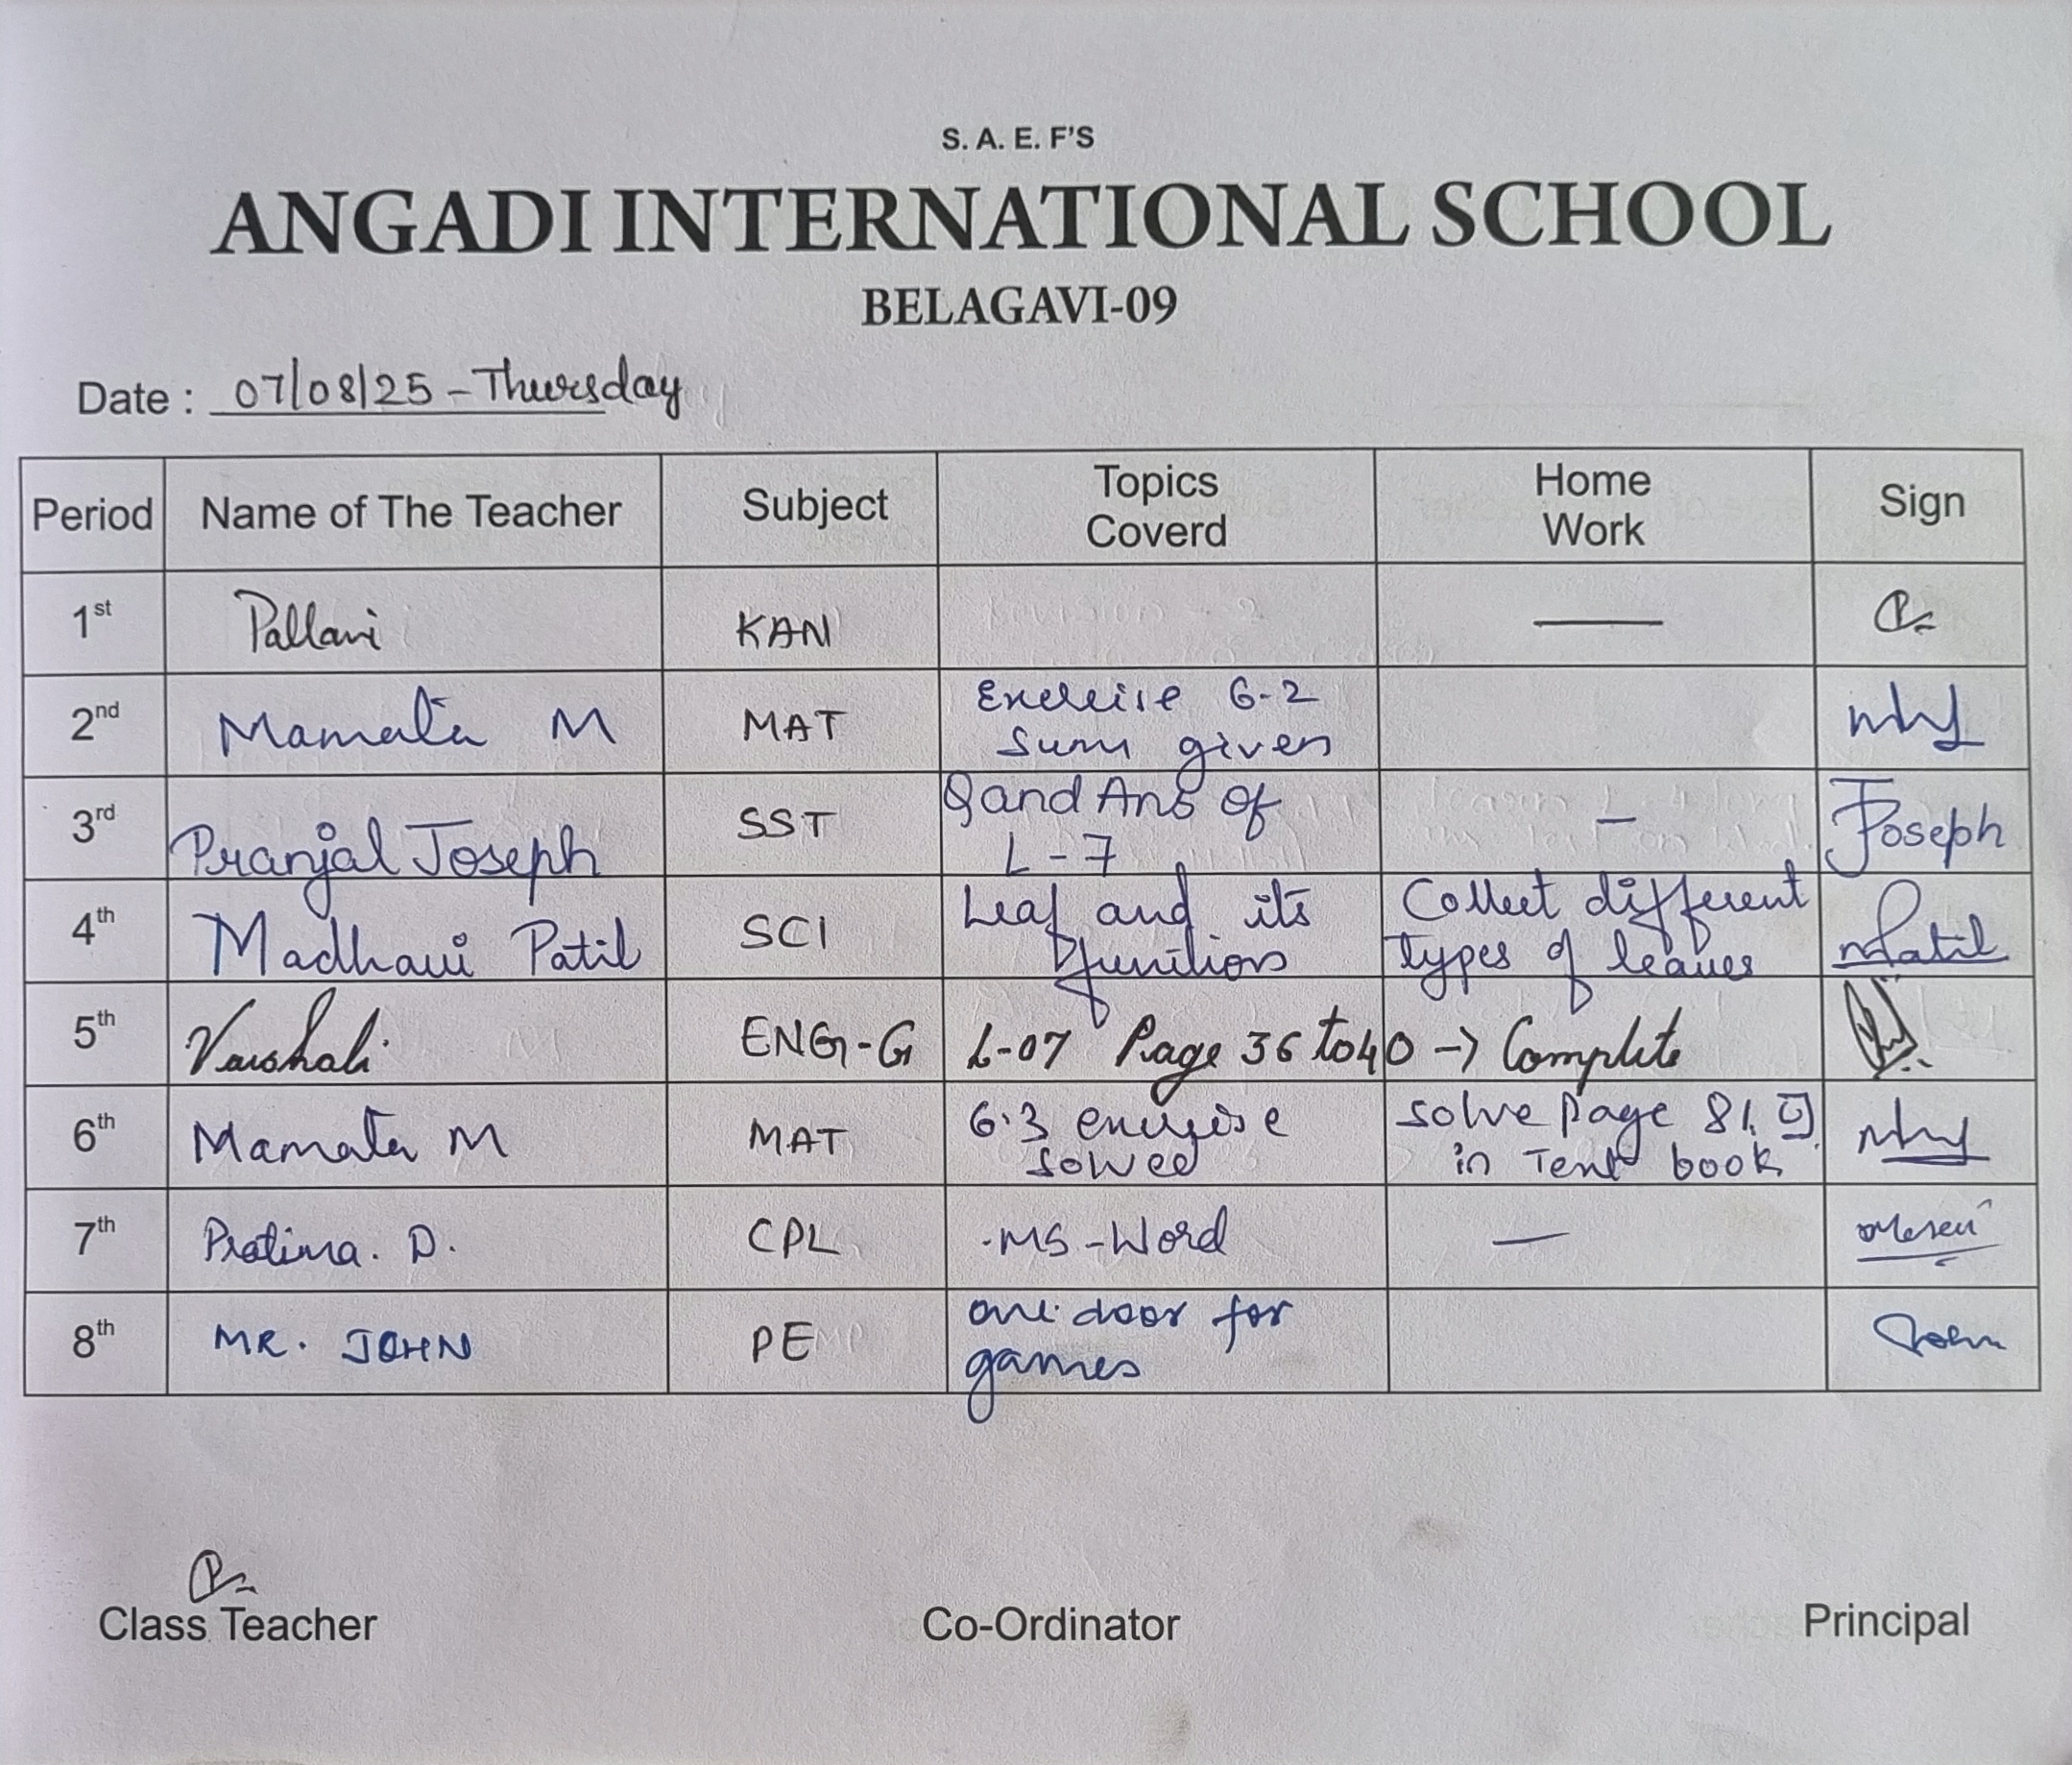 S. A. E. F'S
ANGADI INTERNATIONAL SCHOOL
BELAGAVI-09
Date : 07/08/25 - Thursday
Period Name of The Teacher Subject Topics Coverd Home Work Sign
1st Pallavi KAN —
2nd Mamata M MAT Exercise 6.2
Sum given
3rd Pranjal Joseph SST Q and Ans of
L-7 — Joseph
4th Madhavi Patil SCI Leaf and its
functions Collect different
types of leaves MPatil
5th Vaishali ENG-G L-07 Page 36 to 40 -> Complete
6th Mamata M MAT 6.3 exercise
solved Solve Page 81,
in Text book
7th Pratima. D. CPL MS-Word —
8th MR. JOHN PE door for
games John
Class Teacher Co-Ordinator Principal